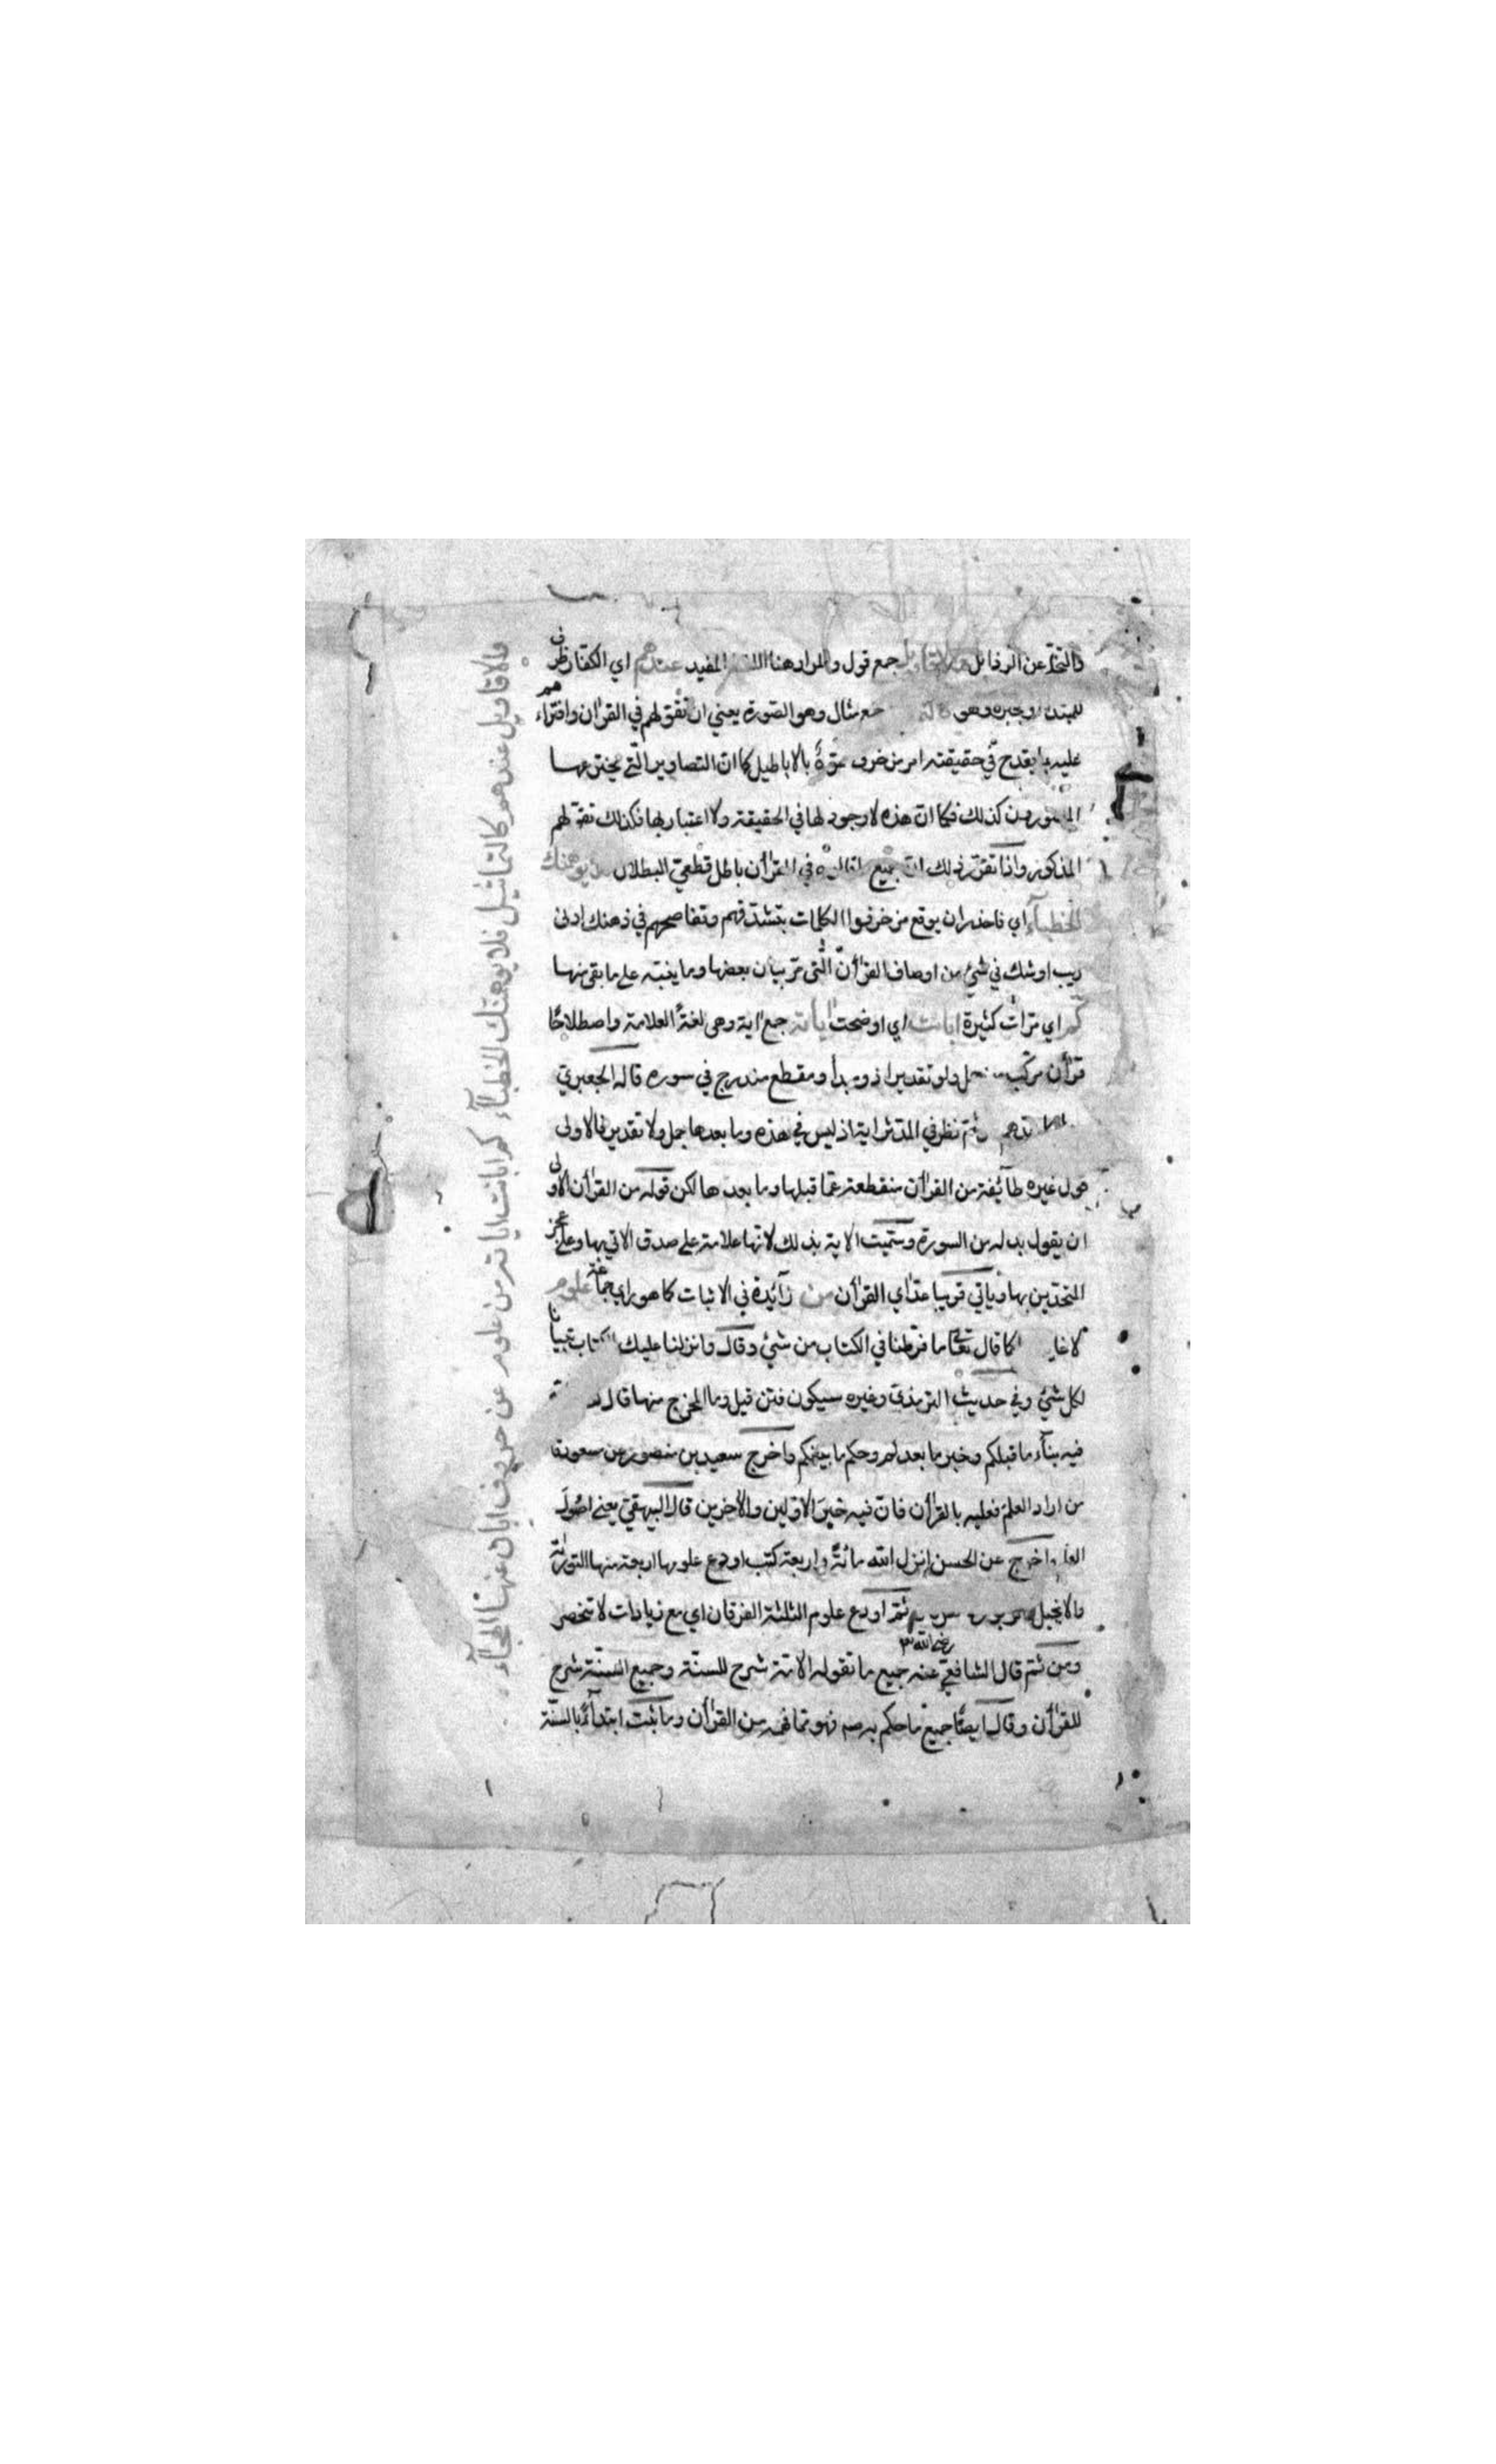 والتخلّ عن الرذايل والاقاويل جمع قول والمراد هنا اللفظ المفيد عندهم اي الكفّار ظرف
للمبتدا وخبره وهو جمع مثال وهو الصّورة يعني ان تقوّلهم في القراٰن وافتراءهم
عليه بما يقدح في حقيقته امر مزخرف مموّه بالاباطيل كما انّ التصاوير الّتي يخترعها
المصورون كذلك فكما انّ هذه لا وجود لها في الحقيقة ولا اعتبار بها فكذلك تقوّلهم
المذكور واذا تقرّر ذلك انّ جميع ما قالوه في القراٰن باطل قطعيّ البطلان فلا يوهمنك
الخطبآء اي فاحذر ان يوقع مزخرفوا الكلمات بتشدّقهم وتفاصحهم في ذهنك ادنى
ريب او شك في شئ من اوصاف القراٰن الّتى مرّ بيان بعضها وما ينبّه على ما بقى منها
كم اي مرّات كثيرة ابانت اي اوضحت اٰياته جمع اٰية وهى لغةً العلامة واصطلاحًا
قراٰن مركّب من جمل ولو تقديرا ذو مبدأ ومقطع مندرج في سوره قاله الجعبريّ
ثمّ نظر في المدّثر اية اذ ليس في هذه وما بعدها جمل ولا تقدير فالاولى
قول غيره طآئفة من القراٰن منقطعة عمّا قبلها وما بعدها لكن قوله من القراٰن الاولى
ان يقول بدله من السورة وسمّيت الاية بذلك لانّها علامة على صدق الاتي بها وعلى عجز
المتحدّين بها وياتي قريبا عدّاي القراٰن من زآئدة في الاثبات كما هو راي جماعة علوم
كما قال تعٰا ما فرّطنا في الكتاب من شئ وقال وانزلنا عليك الكتاب تبيانا
لكل شئ وفي حديث الترمذيّ وغيره سيكون فتن قيل وما المخرج منها قال
فيه بنآء ما قبلكم وخبر ما بعدكم وحكم ما بينكم واخرج سعيد بن منصور عن مسعود قا
من اراد العلمَ فعليه بالقراٰن فانّ فيه خبرَ الاوّلين والاٰخرين قال البيهقيّ يعنى اصُولَ
العلم واخرج عن الحسن انزل الله مائةً واربعة كتب اودع علومها اربعة منها التورٰية
والانجيل والزبور ثمّ اودع علوم الثلثة الفرقان اي مع زيادات لا تنحصر
ومن ثمّ قال الشافعيّ رضي الله عنه جميع ما تقوله الامّة شرح للسنّة وجميع السّنّة شرح
للقراٰن وقال ايضًا جميع ما حكم به صم فهو ممّا فهمه من القراٰن وما ثبت ابتدآءً بالسنّة
والاقاويل عندهم كالتماثيل فلا يوهمنك الخطبآء كم ابانت اياته من علوم عن حروف ابان عنها الهجآء